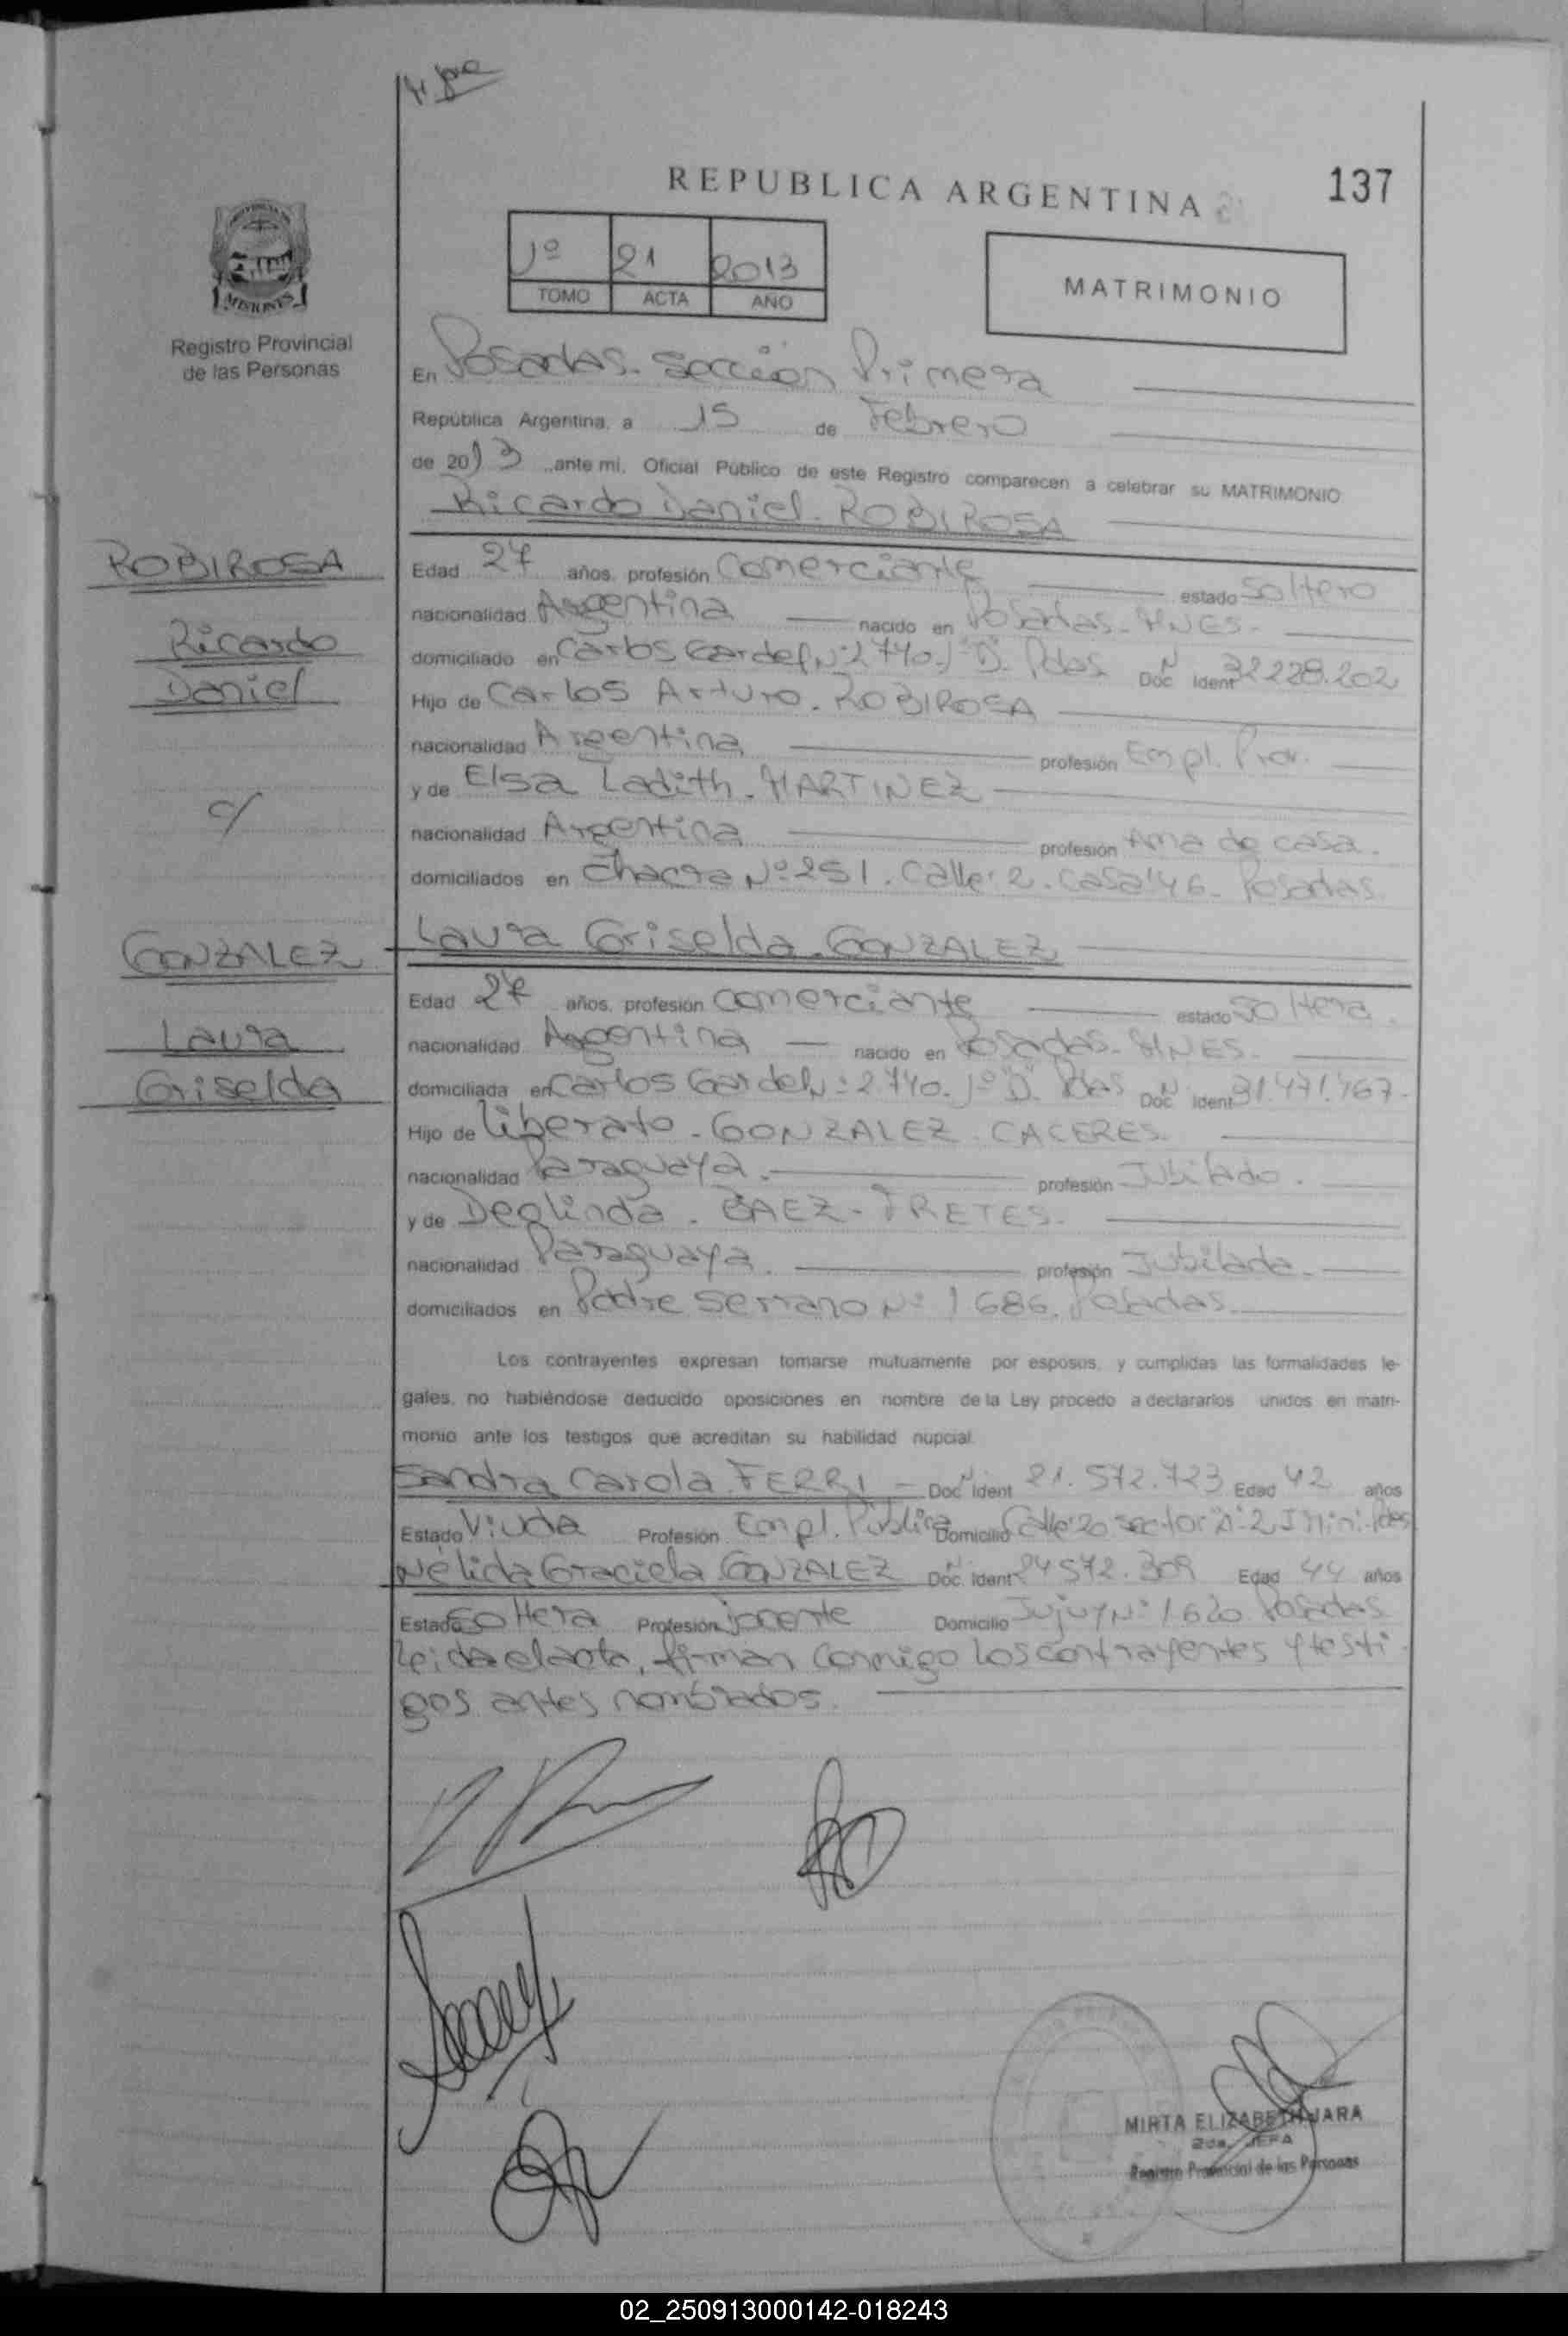 REPUBLICA ARGENTINA
137
1º 21 2013
TOMO ACTA AÑO
MATRIMONIO
MISIONES
Registro Provincial
de las Personas
En Posadas. Sección Primera
República Argentina, a 15 de Febrero
de 2013 ante mi, Oficial Público de este Registro comparecen a celebrar su MATRIMONIO
Ricardo Daniel ROBIROSA
ROBIROSA
Ricardo
Daniel
c/
GONZALEZ
Laura
Griselda
Edad 27 años, profesión Comerciante estado Soltero
nacionalidad Argentina nacido en Posadas. MNES.
domiciliado en Carlos Gardel Nº 2740. 1º "D". Pdas Doc. Ident 32.228.202
Hijo de Carlos Arturo. ROBIROSA
nacionalidad Argentina profesión Empl. Prov.
y de Elsa Ladith. MARTINEZ
nacionalidad Argentina profesión Ama de casa.
domiciliados en Chacra Nº 251. Calle: 2. Casa: 46. Posadas
Laura Griselda. GONZALEZ
Edad 27 años, profesión Comerciante estado Soltera.
nacionalidad Argentina nacido en Posadas. MNES.
domiciliada en Carlos Gardel Nº 2740. 1º "D". Pdas Doc. Ident 31.471.467.
Hijo de Liberato. GONZALEZ CACERES.
nacionalidad Paraguaya. profesión Jubilado.
y de Deolinda. BAEZ. FRETES.
nacionalidad Paraguaya. profesión Jubilada.
domiciliados en Padre Serrano Nº 1686. Posadas.
Los contrayentes expresan tomarse mutuamente por esposos, y cumplidas las formalidades le-
gales, no habiéndose deducido oposiciones en nombre de la Ley procedo a declararlos unidos en matri-
monio ante los testigos que acreditan su habilidad nupcial
Sandra Carola FERRI Doc. Ident 21.572.723 Edad 42 años
Estado Viuda Profesión Empl. Pública Domicilio Calle: 20 sector "A"-2 Pdas
Nélida Graciela GONZALEZ Doc. Ident 24572.309 Edad 44 años
Estado Soltera Profesión Docente Domicilio Jujuy Nº 1620. Posadas
Leida el acta, firman conmigo los contrayentes y testi
gos antes nombrados.
MIRTA ELIZABETH JARA
2da. JEFA
Registro Provincial de las Personas
02_250913000142-018243